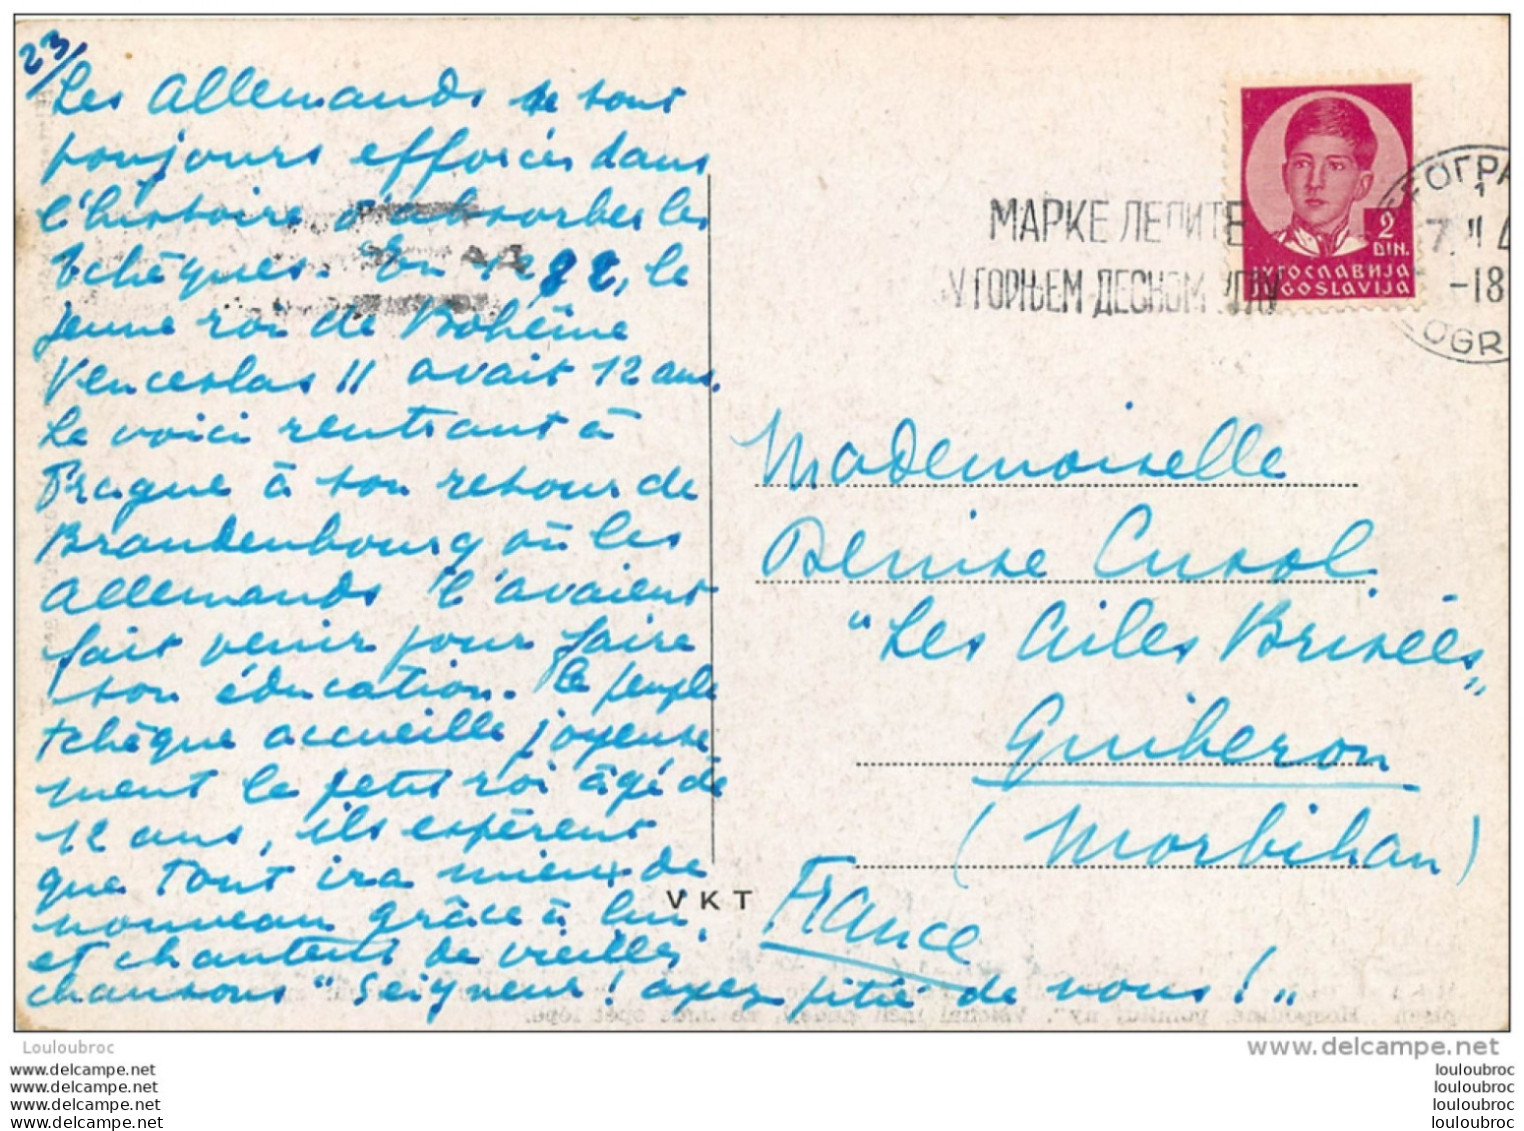 23/
Les Allemands se sont
toujours efforcés dans
l'histoire d'absorber les
tchèques. En 1282, le
jeune roi de Bohême
Venceslas II avait 12 ans.
Le voici rentrant à
Prague à son retour de
Brandenbourg où les
Allemands l'avaient
fait venir pour faire
son éducation. Le peuple
tchèque accueille joyeuse
ment le petit roi âgé de
12 ans, ils espèrent
que tout ira mieux de
nouveau grâce à lui,
et chantent de vieilles
chansons "Seigneur! ayez pitié de nous!"
VKT
МАРКЕ ЛЕПИТЕ
У ГОРЊЕМ ДЕСНОМ УГЛУ
2
DIN.
ЈУГОСЛАВИЈА
JUGOSLAVIJA
ЕОГРА
1
7 II
-18
EOGR
Mademoiselle
Denise Cusol
"Les Ailes Brisées"
Guiberon
(Morbihan)
France
Louloubroc
www.delcampe.net
www.delcampe.net
www.delcampe.net
www.delcampe.net
delcampe.net
louloubroc
louloubroc
louloubroc
louloubroc